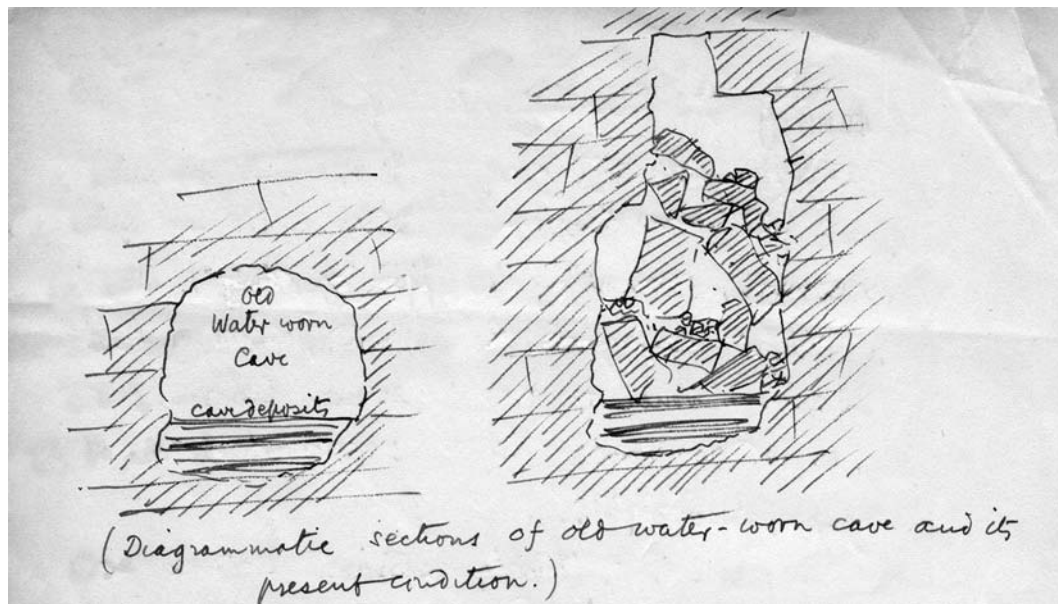 old
Water worn
Cave
cave deposits
(Diagrammatic sections of old water-worn cave and its
present condition.)